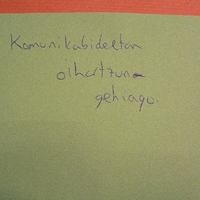 Komunikabideetan
olhartzun
gehiago.